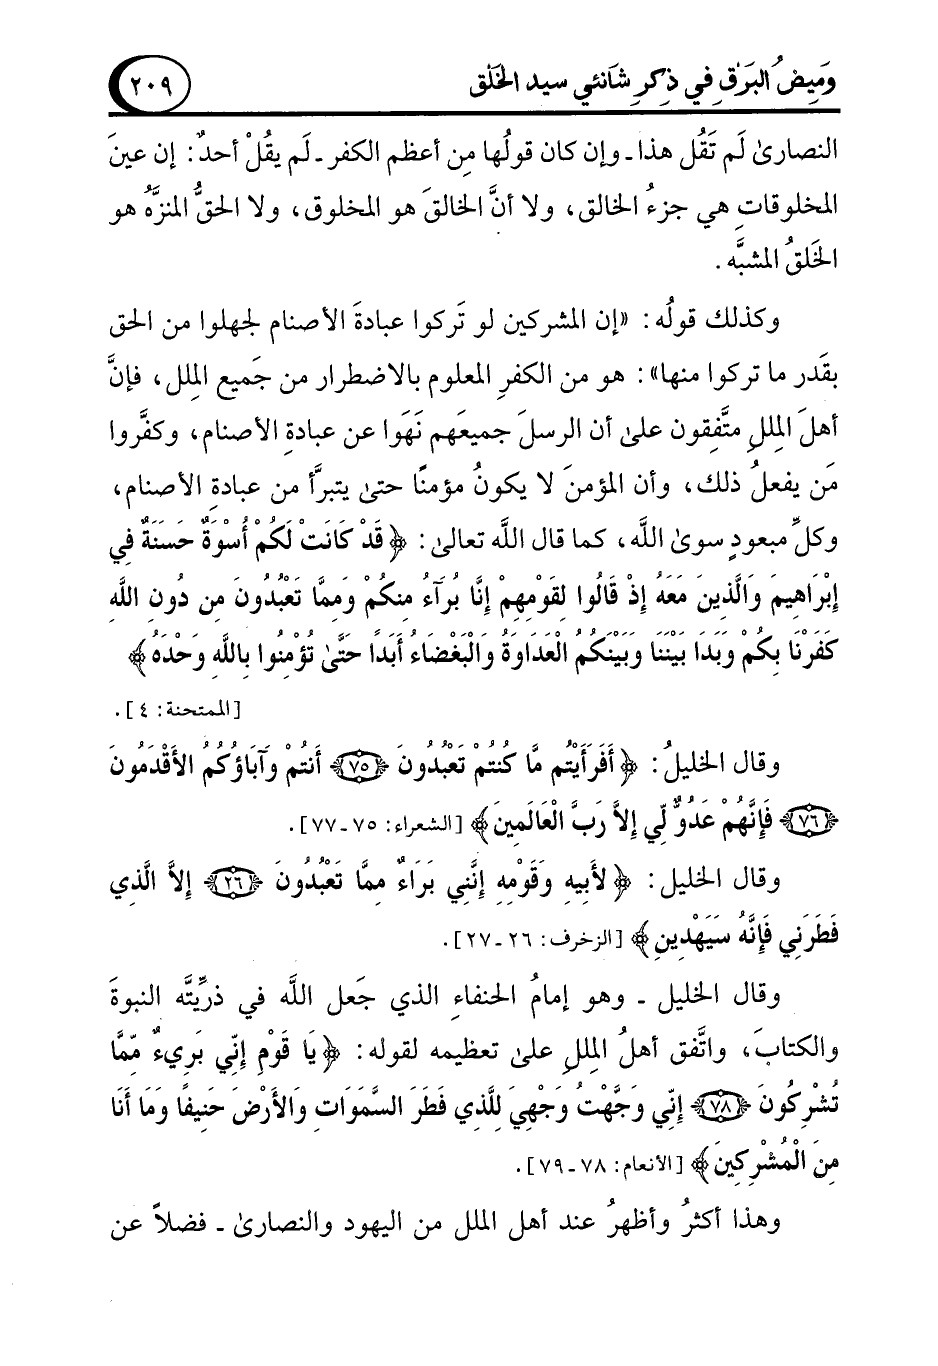 وَمِيضُ البَرْقِ فِي ذِكرِ شَانئي سيد الخَلْق ٢٠٩
النصارىٰ لَم تَقُل هذا ـ وإن كان قولُها مِن أعظم الكفر ـ لَم يقُلْ أحدٌ: إن عينَ
المخلوقاتِ هي جزءُ الخالق، ولا أنَّ الخالقَ هو المخلوق، ولا الحقُّ المنزَّهُ هو
الخَلقُ المشبَّه.
وكذلك قولُه: «إن المشركين لو تَركوا عبادةَ الأصنام لجهلوا من الحق
بقَدر ما تركوا منها»: هو من الكفرِ المعلوم بالاضطرار من جَميع المِلل، فإنَّ
أهلَ المِللِ متَّفِقون علىٰ أن الرسلَ جميعَهم نَهَوا عن عبادةِ الأصنام، وكفَّروا
مَن يفعلُ ذلك، وأن المؤمنَ لا يكونُ مؤمنًا حتىٰ يتبرَّأ من عبادةِ الأصنام،
وكلِّ مبعودٍ سوىٰ اللَّه، كما قال اللَّه تعالىٰ: ﴿قَدْ كَانَتْ لَكُمْ أُسْوَةٌ حَسَنَةٌ فِي
إِبْرَاهِيمَ وَالَّذِينَ مَعَهُ إِذْ قَالُوا لِقَوْمِهِمْ إِنَّا بُرَآءُ مِنكُمْ وَمِمَّا تَعْبُدُونَ مِن دُونِ اللَّهِ
كَفَرْنَا بِكُمْ وَبَدَا بَيْنَنَا وَبَيْنَكُمُ الْعَدَاوَةُ وَالْبَغْضَاءُ أَبَداً حَتَّىٰ تُؤْمِنُوا بِاللَّهِ وَحْدَهُ﴾
[الممتحنة: ٤].
وقال الخليلُ: ﴿أَفَرَأَيْتُم مَّا كُنتُمْ تَعْبُدُونَ ﴿٧٥﴾ أَنتُمْ وَآبَاؤُكُمُ الأَقْدَمُونَ
﴿٧٦﴾ فَإِنَّهُمْ عَدُوٌّ لِّي إِلاَّ رَبَّ الْعَالَمِينَ﴾ [الشعراء: ٧٥ ـ ٧٧].
وقال الخليل: ﴿لأَبِيهِ وَقَوْمِهِ إِنَّنِي بَرَاءٌ مِمَّا تَعْبُدُونَ ﴿٢٦﴾ إِلاَّ الَّذِي
فَطَرَنِي فَإِنَّهُ سَيَهْدِينِ﴾ [الزخرف: ٢٦ ـ ٢٧].
وقال الخليل ـ وهو إمامُ الحنفاءِ الذي جَعل اللَّه في ذرِّيَّته النبوةَ
والكتابَ، واتَّفق أهلُ المِللِ علىٰ تعظيمه لقوله: ﴿يَا قَوْمِ إِنِّي بَرِيءٌ مِّمَّا
تُشْرِكُونَ ﴿٧٨﴾ إِنِّي وَجَّهْتُ وَجْهِيَ لِلَّذِي فَطَرَ السَّمَوَاتِ وَالأَرْضَ حَنِيفًا وَمَا أَنَا
مِنَ الْمُشْرِكِينَ﴾ [الأنعام: ٧٨ ـ ٧٩].
وهذا أكثرُ وأظهرُ عند أهل الملل من اليهود والنصارىٰ ـ فضلاً عن